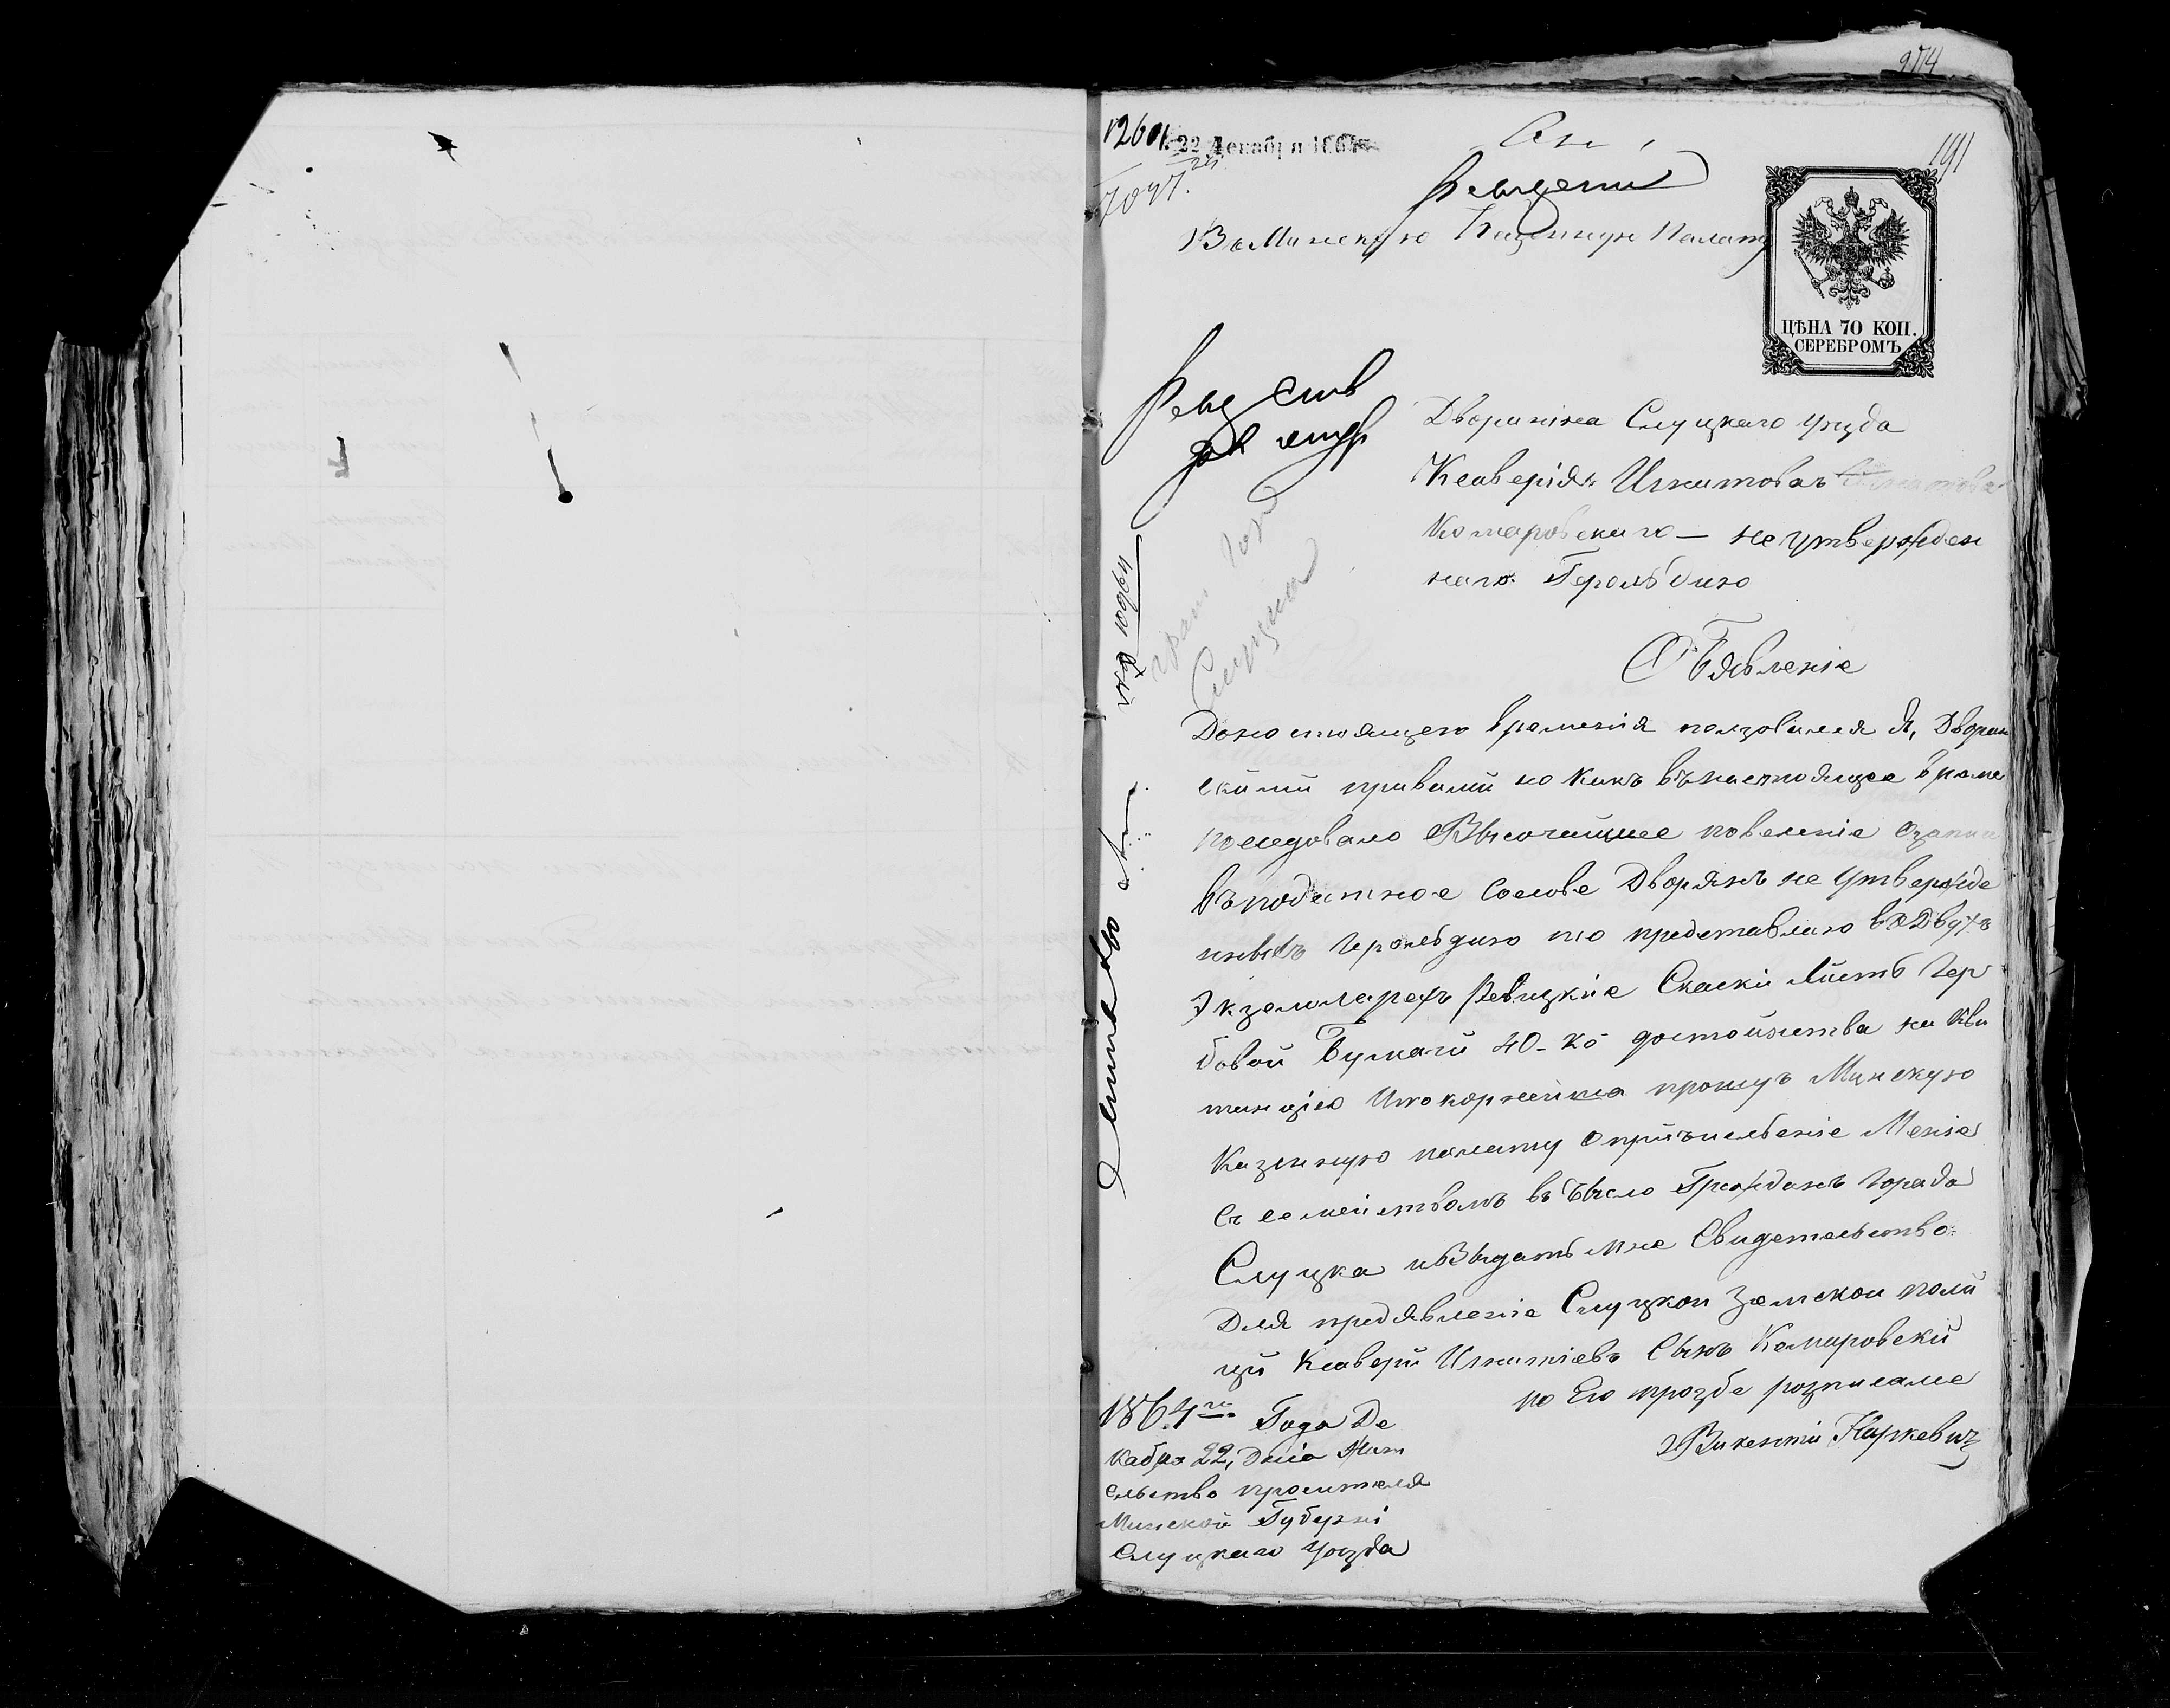 274
191
12601.
22 Декабря 1864
Въ Минскую Казенную Палату
ЦѢНА 70 КОП.
СЕРЕБРОМЪ
Дворянина Слуцкаго уѣзда
Ксаверія Игнатова
Комаровскаго — не утвержден
наго Герольдию
Обявленіе
До ностоящего времения ползовался Я, Дворян
скими правами но какъ въ настоящее время
последовало Высочайшее повеленіе
въ податное сословe Дворянъ не утвержде
ныхъ Герольдию то представляю в Двухъ
Экземпляряхъ Ревизкие Скаски листъ Гер
бовой Бумаги 40-ко достоинства на кви
танцию Ипокорнейша прошу Минскую
Казенную палату о причисленіе Меня
Съ семействамъ въ Число Гражданъ Города
Слуцка и Выдать мне Свидетельство
Для предявление Слуцкои Земскои поли
ции Ксавери Игнатіевъ Сынъ Комаровски
по Его прозбе розписалсе
Викентий Наркевич
1864го Года Де
кабра 22, Дния Жит
ельство просителя
Минской Губерни
Слуцкаго Уезда
Гражд Гор
Слуцка